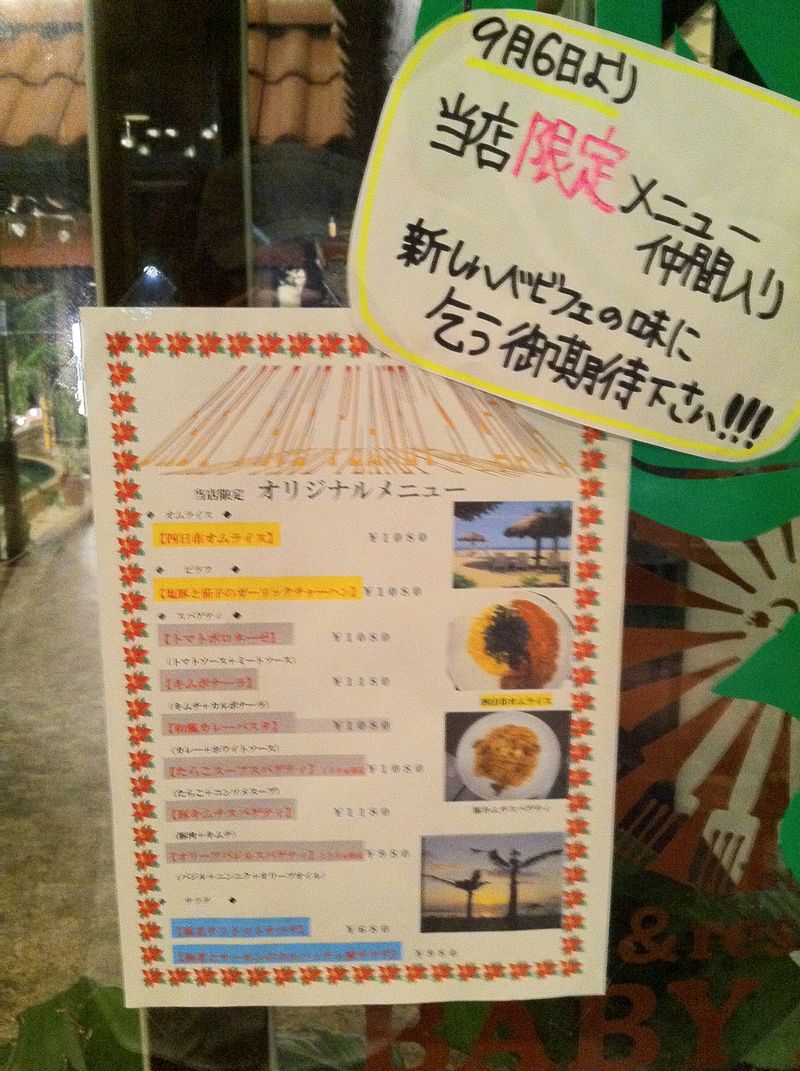 9月6日より
当店限定メニュー
仲間入り
新しいベビフェの味に
乞う御期待下さい!!!
当店限定 オリジナルメニュー
◆ オムライス ◆
【四日市オムライス】 ¥1080
◆ ピラフ ◆
【塩豚と茄子のガーリックチャーハン】 ¥1080
◆ スパゲティ ◆
【トマトボロネーゼ】 ¥1080
(トマトソース+ミートソース)
【キムボナーラ】 ¥1180
(キムチ+カルボナーラ)
【和風カレーパスタ】 ¥1080
(カレー+ホワイトソース)
【たらこスープスパゲティ】 ¥1080
(たらこ+コンソメスープ)
【豚キムチスパゲティ】 ¥1180
(豚肉+キムチ)
【オリーブバジルスパゲティ】 ¥980
(バジル+ニンニク+オリーブオイル)
サラダ ◆
¥680
【海老とサーモンのカルパッチョ風サラダ】 ¥980
四日市オムライス
豚キムチスパゲティ
& res
BABY